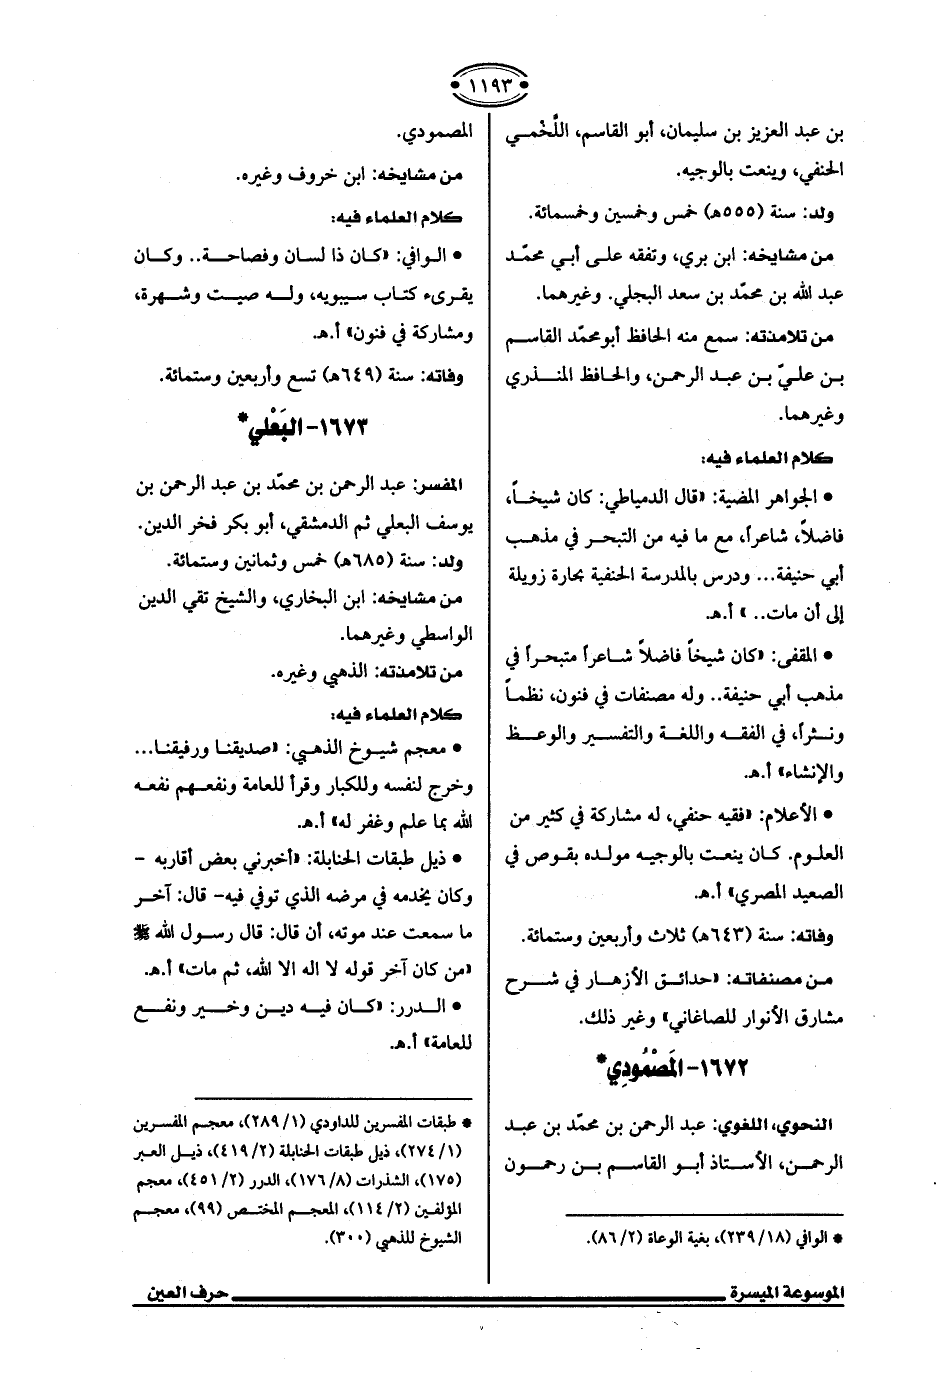 ١١٩٣
بن عبد العزيز بن سليمان، أبو القاسم، اللَّخْمي
الحنفي، وينعت بالوجيه.
ولد: سنة (٥٥٥هـ) خمس وخمسين وخمسمائة.
من مشايخه: ابن بري، وتفقه على أبي محمّد
عبد الله بن محمّد بن سعد البجلي. وغيرهما.
من تلامذته: سمع منه الحافظ أبو محمّد القاسم
بن عليّ بن عبد الرحمن، والحافظ المنذري
وغيرهما.
كلام العلماء فيه:
• الجواهر المضية: «قال الدمياطي: كان شيخاً،
فاضلاً، شاعراً، مع ما فيه من التبحر في مذهب
أبي حنيفة... ودرس بالمدرسة الحنفية بحارة زويلة
إلى أن مات.. » أ.هـ.
• المقفى: «كان شيخاً فاضلاً شاعراً متبحراً في
مذهب أبي حنيفة.. وله مصنفات في فنون، نظماً
ونثراً، في الفقه واللغة والتفسير والوعظ
والإنشاء» أ.هـ.
• الأعلام: «فقيه حنفي، له مشاركة في كثير من
العلوم. كان ينعت بالوجيه مولده بقوص في
الصعيد المصري» أ.هـ.
وفاته: سنة (٦٤٣هـ) ثلاث وأربعين وستمائة.
من مصنفاته: «حدائق الأزهار في شرح
مشارق الأنوار للصاغاني» وغير ذلك.
١٦٧٢- المَصْمُودي*
النحوي، اللغوي: عبد الرحمن بن محمّد بن عبد
الرحمن، الأستاذ أبو القاسم بن رحمون
* الوافي (١٨/ ٢٣٩)، بغية الوعاة (٢/ ٨٦).
المصمودي.
من مشايخه: ابن خروف وغيره.
كلام العلماء فيه:
• الوافي: «كان ذا لسان وفصاحة.. وكان
يقرىء كتاب سيبويه، وله صيت وشهرة،
ومشاركة في فنون» أ.هـ.
وفاته: سنة (٦٤٩هـ) تسع وأربعين وستمائة.
١٦٧٣- البَعْلي*
المفسر: عبد الرحمن بن محمّد بن عبد الرحمن بن
يوسف البعلي ثم الدمشقي، أبو بكر فخر الدين.
ولد: سنة (٦٨٥هـ) خمس وثمانين وستمائة.
من مشايخه: ابن البخاري، والشيخ تقي الدين
الواسطي وغيرهما.
من تلامذته: الذهبي وغيره.
كلام العلماء فيه:
• معجم شيوخ الذهبي: «صديقنا ورفيقنا...
وخرج لنفسه وللكبار وقرأ للعامة ونفعهم نفعه
الله بما علم وغفر له» أ.هـ.
• ذيل طبقات الحنابلة: «أخبرني بعض أقاربه -
وكان يخدمه في مرضه الذي توفي فيه- قال: آخر
ما سمعت عند موته، أن قال: قال رسول الله ﷺ
«من كان آخر قوله لا اله الا الله، ثم مات» أ.هـ.
• الدرر: «كان فيه دين وخير ونفع
للعامة» أ.هـ.
* طبقات المفسرين للداودي (١/ ٢٨٩)، معجم المفسرين
(١/ ٢٧٤)، ذيل طبقات الحنابلة (٢/ ٤١٩)، ذيل العبر
(١٧٥)، الشذرات (٨/ ١٧٦)، الدرر (٢/ ٤٥١)، معجم
المؤلفين (٢/ ١١٤)، المعجم المختص (٩٩)، معجم
الشيوخ للذهبي (٣٠٠).
الموسوعة الميسرة حرف العين